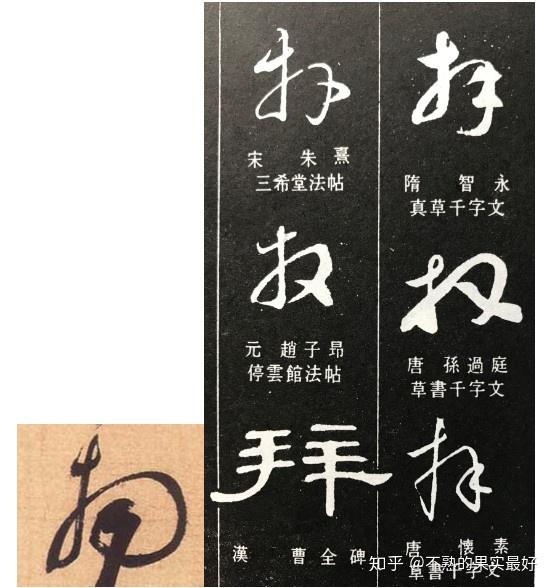 拜
隋 智永
真草千字文
拜
唐 孫過庭
草書千字文
拜
唐 懷素
草書千字文
拜
宋 朱熹
三希堂法帖
拜
元 趙子昂
停雲館法帖
拜
漢 曹全碑
知乎 @不熟的果实最好